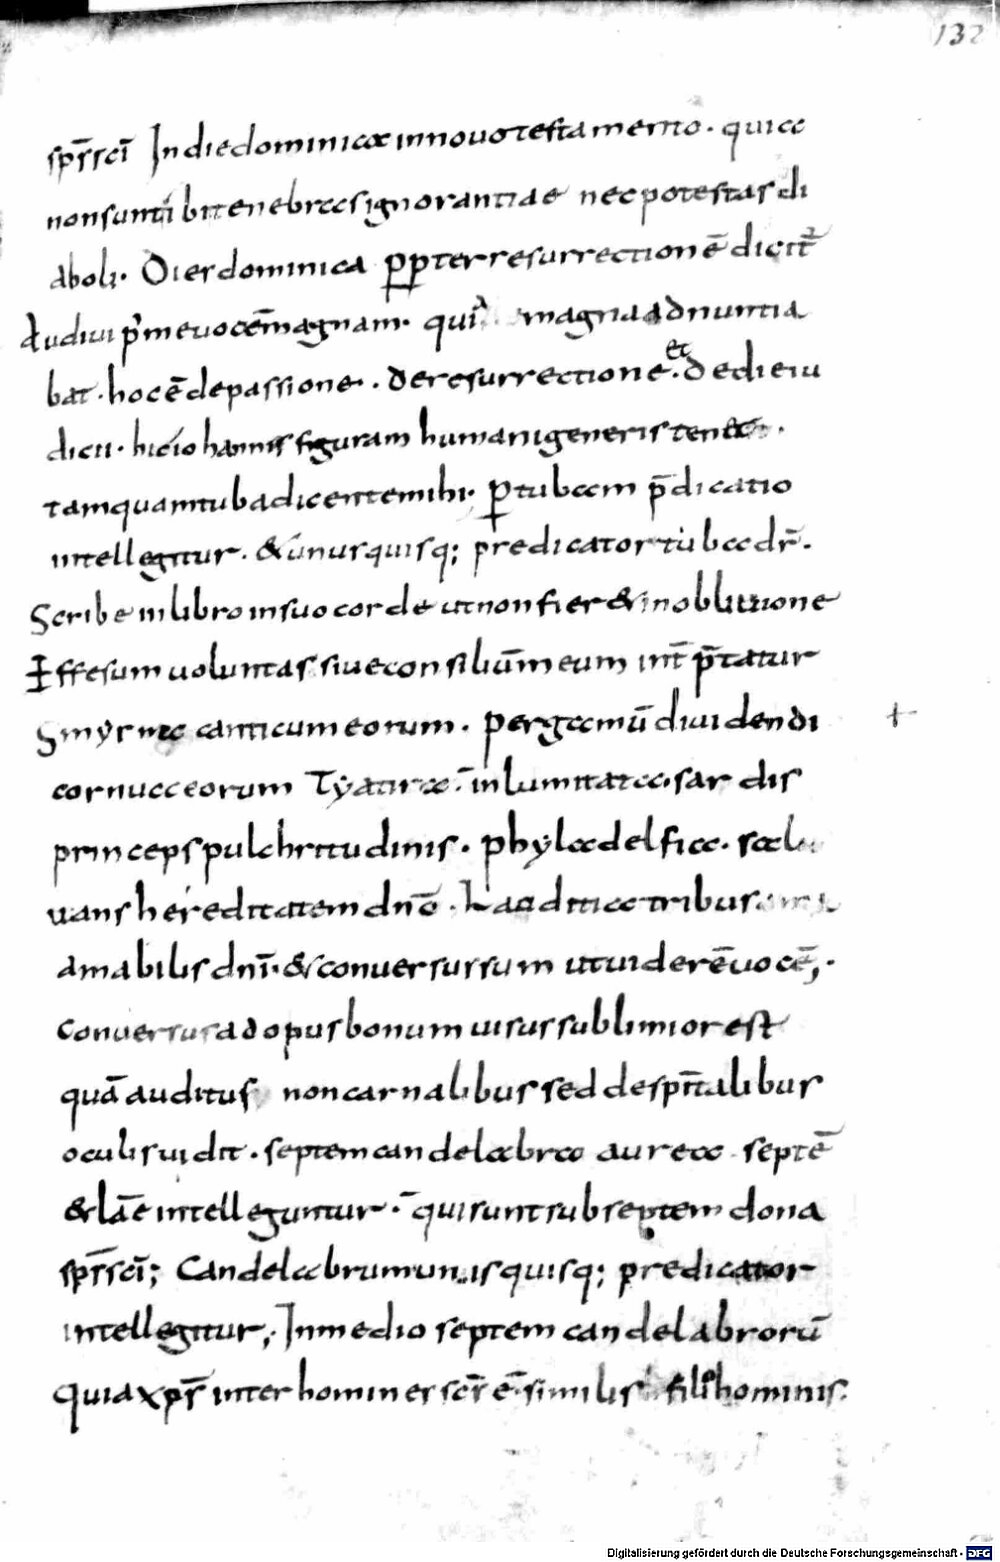 132
sp̄s sc̄i In die dominica in nouo testamento · quia
non sunt ibi tenebrae signorantiae nec potestas di
aboli · Dies dominica ꝓpter resurrectionē dicit᷑
Audiui p᷒ me uocē magnam · quia magna adnuntia
bat · hoc ē de passione · de resurrectione · et de die iu
dicii · hic iohannis figuram humani generis tenet ·
tamquam tubae dicentem ihi · ꝑ tubam p̄dicatio
intellegitur · & unusquisq; predicator tuba dr̄ ·
Scribe in libro in suo corde ut non fier& in obliuione
Effesum uoluntas siue consiliū meum int̄p̄tatur
Smyrne canticum eorum · pergamū diuidendi +
cornua eorum Tyatirae · inluminatae · sardis
princeps pulchritudinis · phyladelfiae · salu
uans hereditatem dn̄o · Laaditiae tribus
amabilis dn̄i · & conuersus sum ut uiderē uocē; ·
Conuersus ad opus bonum uisus sublimior est
quā auditus non carnalibus sed de sp̄italibus
oculis uidit · septem candelabra aurea · septē
&lāe intelleguntur · qui sunt sub septem dona
sp̄s sc̄i; Candelabrum unusquisq; predicator
intellegitur; In medio septem candelabrorū
quia xp̄s inter homines sc̄s ē · similis filio hominis ·
Digitalisierung gefördert durch die Deutsche Forschungsgemeinschaft - DFG